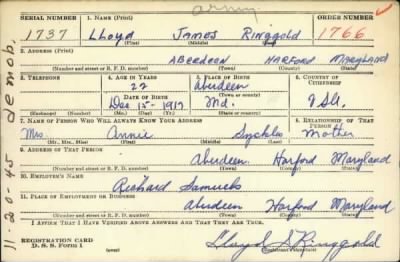 army
SERIAL NUMBER 1. NAME (Print) ORDER NUMBER
1737 Lloyd James Ringgold 1766
(First) (Middle) (Last)
2. ADDRESS (Print)
Aberdeen Harford Maryland
(Number and street or R. F. D. number) (Town) (County) (State)
3. TELEPHONE 4. AGE IN YEARS 5. PLACE OF BIRTH 6. COUNTRY OF CITIZENSHIP
22 Aberdeen
DATE OF BIRTH (Town or county)
Dec 15-1917 Md. USA.
(Exchange) (Number) (Mo.) (Day) (Yr.) (State or country)
7. NAME OF PERSON WHO WILL ALWAYS KNOW YOUR ADDRESS 8. RELATIONSHIP OF THAT PERSON
Mrs. Annie Sychles Mother
(Mr., Mrs., Miss) (First) (Middle) (Last)
9. ADDRESS OF THAT PERSON
Aberdeen Harford Maryland
(Number and street or R. F. D. number) (Town) (County) (State)
10. EMPLOYER'S NAME
Richard Samuels
11. PLACE OF EMPLOYMENT OR BUSINESS
Aberdeen Harford Maryland
(Number and street or R. F. D. number) (Town) (County) (State)
I AFFIRM THAT I HAVE VERIFIED ABOVE ANSWERS AND THAT THEY ARE TRUE.
REGISTRATION CARD
D. S. S. Form 1
Lloyd J Ringgold
(Registrant's signature)
11-20-45 demob.